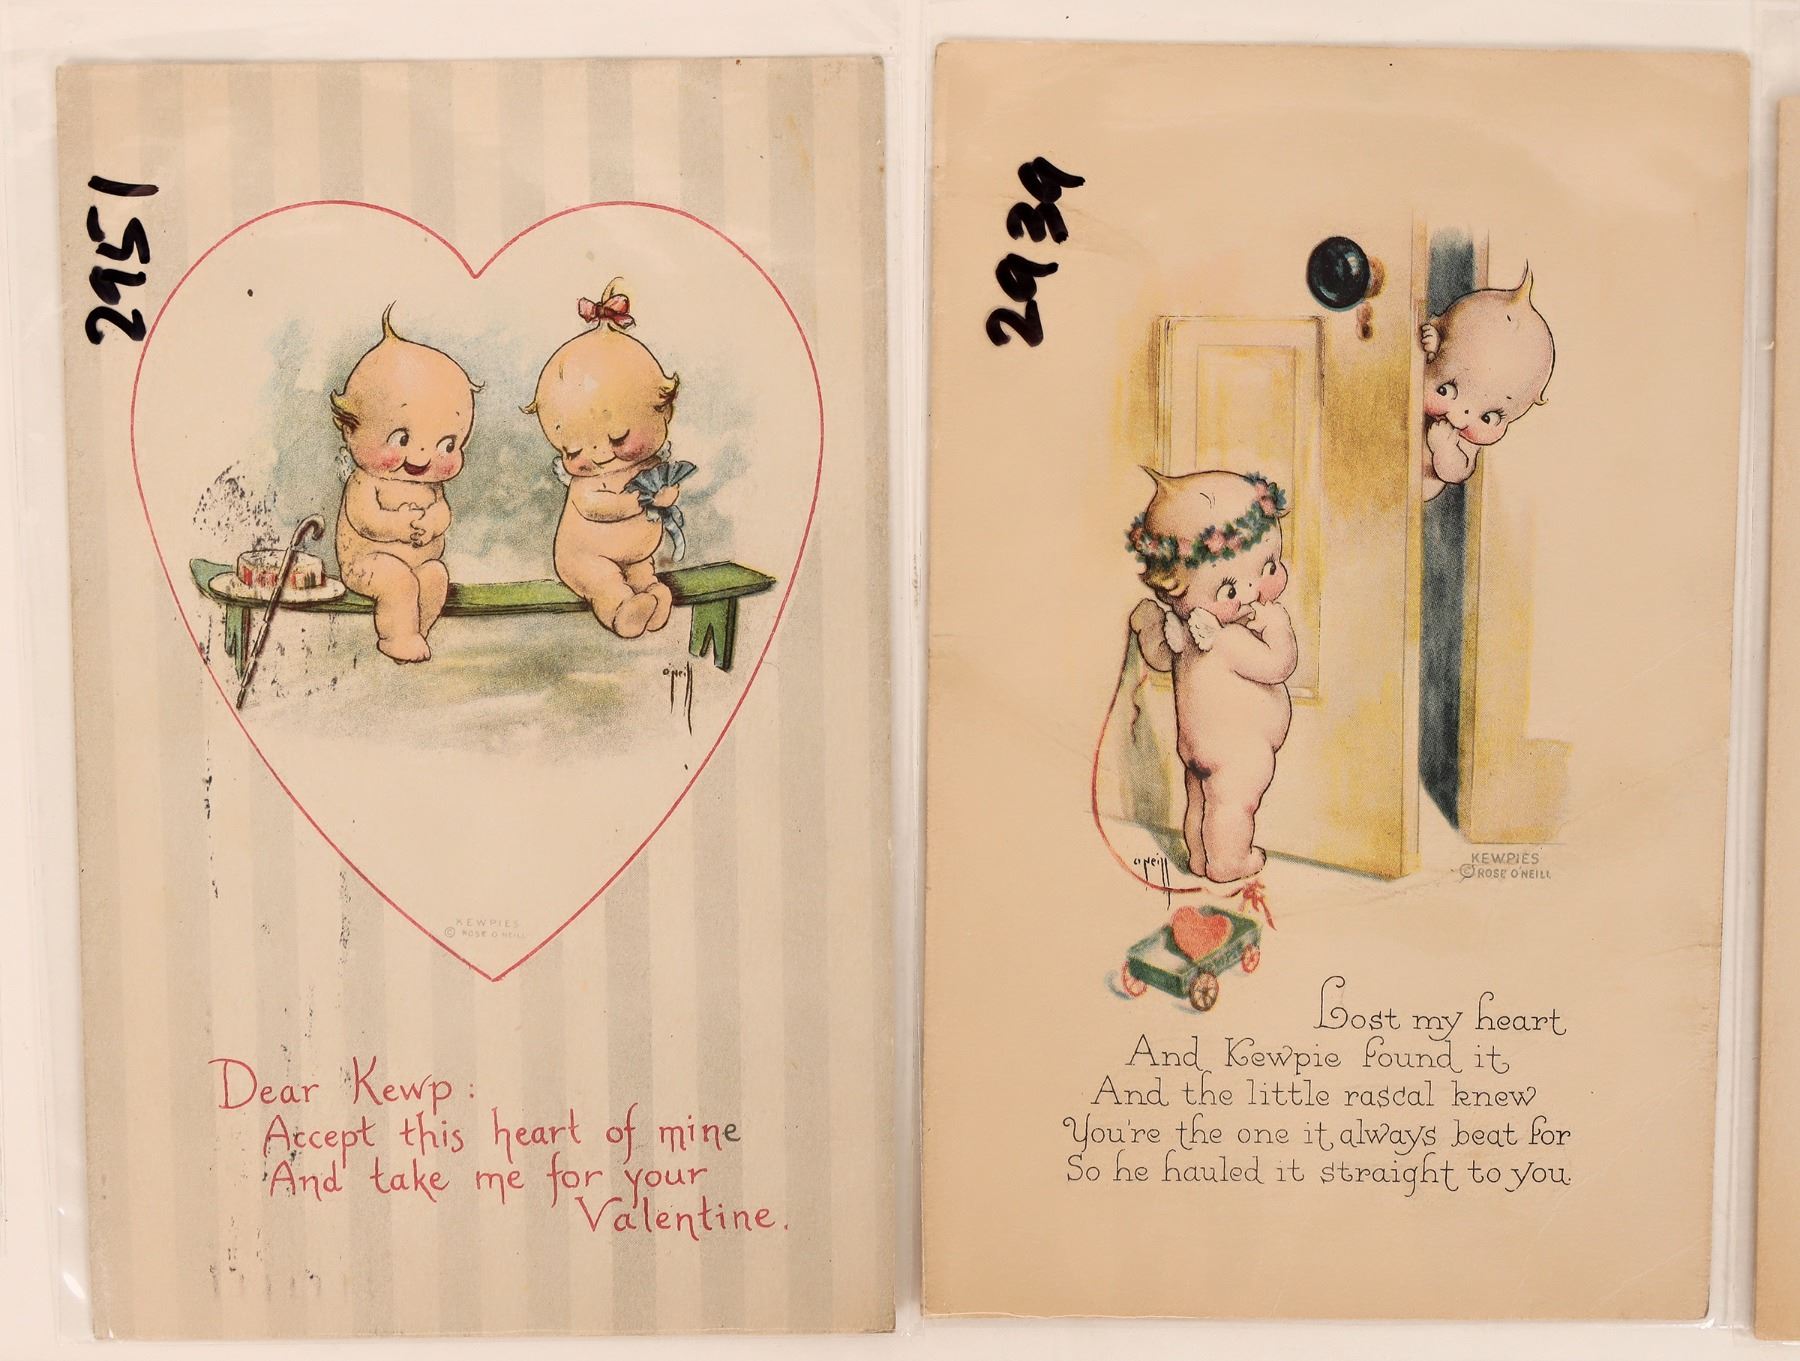 2951
O'Neill
KEWPIES
© ROSE O'NEILL
Dear Kewp:
Accept this heart of mine
And take me for your
Valentine.
2939
O'Neill
KEWPIES
© ROSE O'NEILL
Lost my heart
And Kewpie found it
And the little rascal knew
You're the one it always beat for
So he hauled it straight to you.